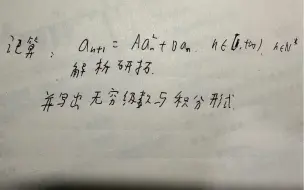 计算, aₙ₊₁ = Aaₙ² + Daₙ. n∈[1,+∞), n∈N*
解析研拓.
并写出无穷级数与积分形式.